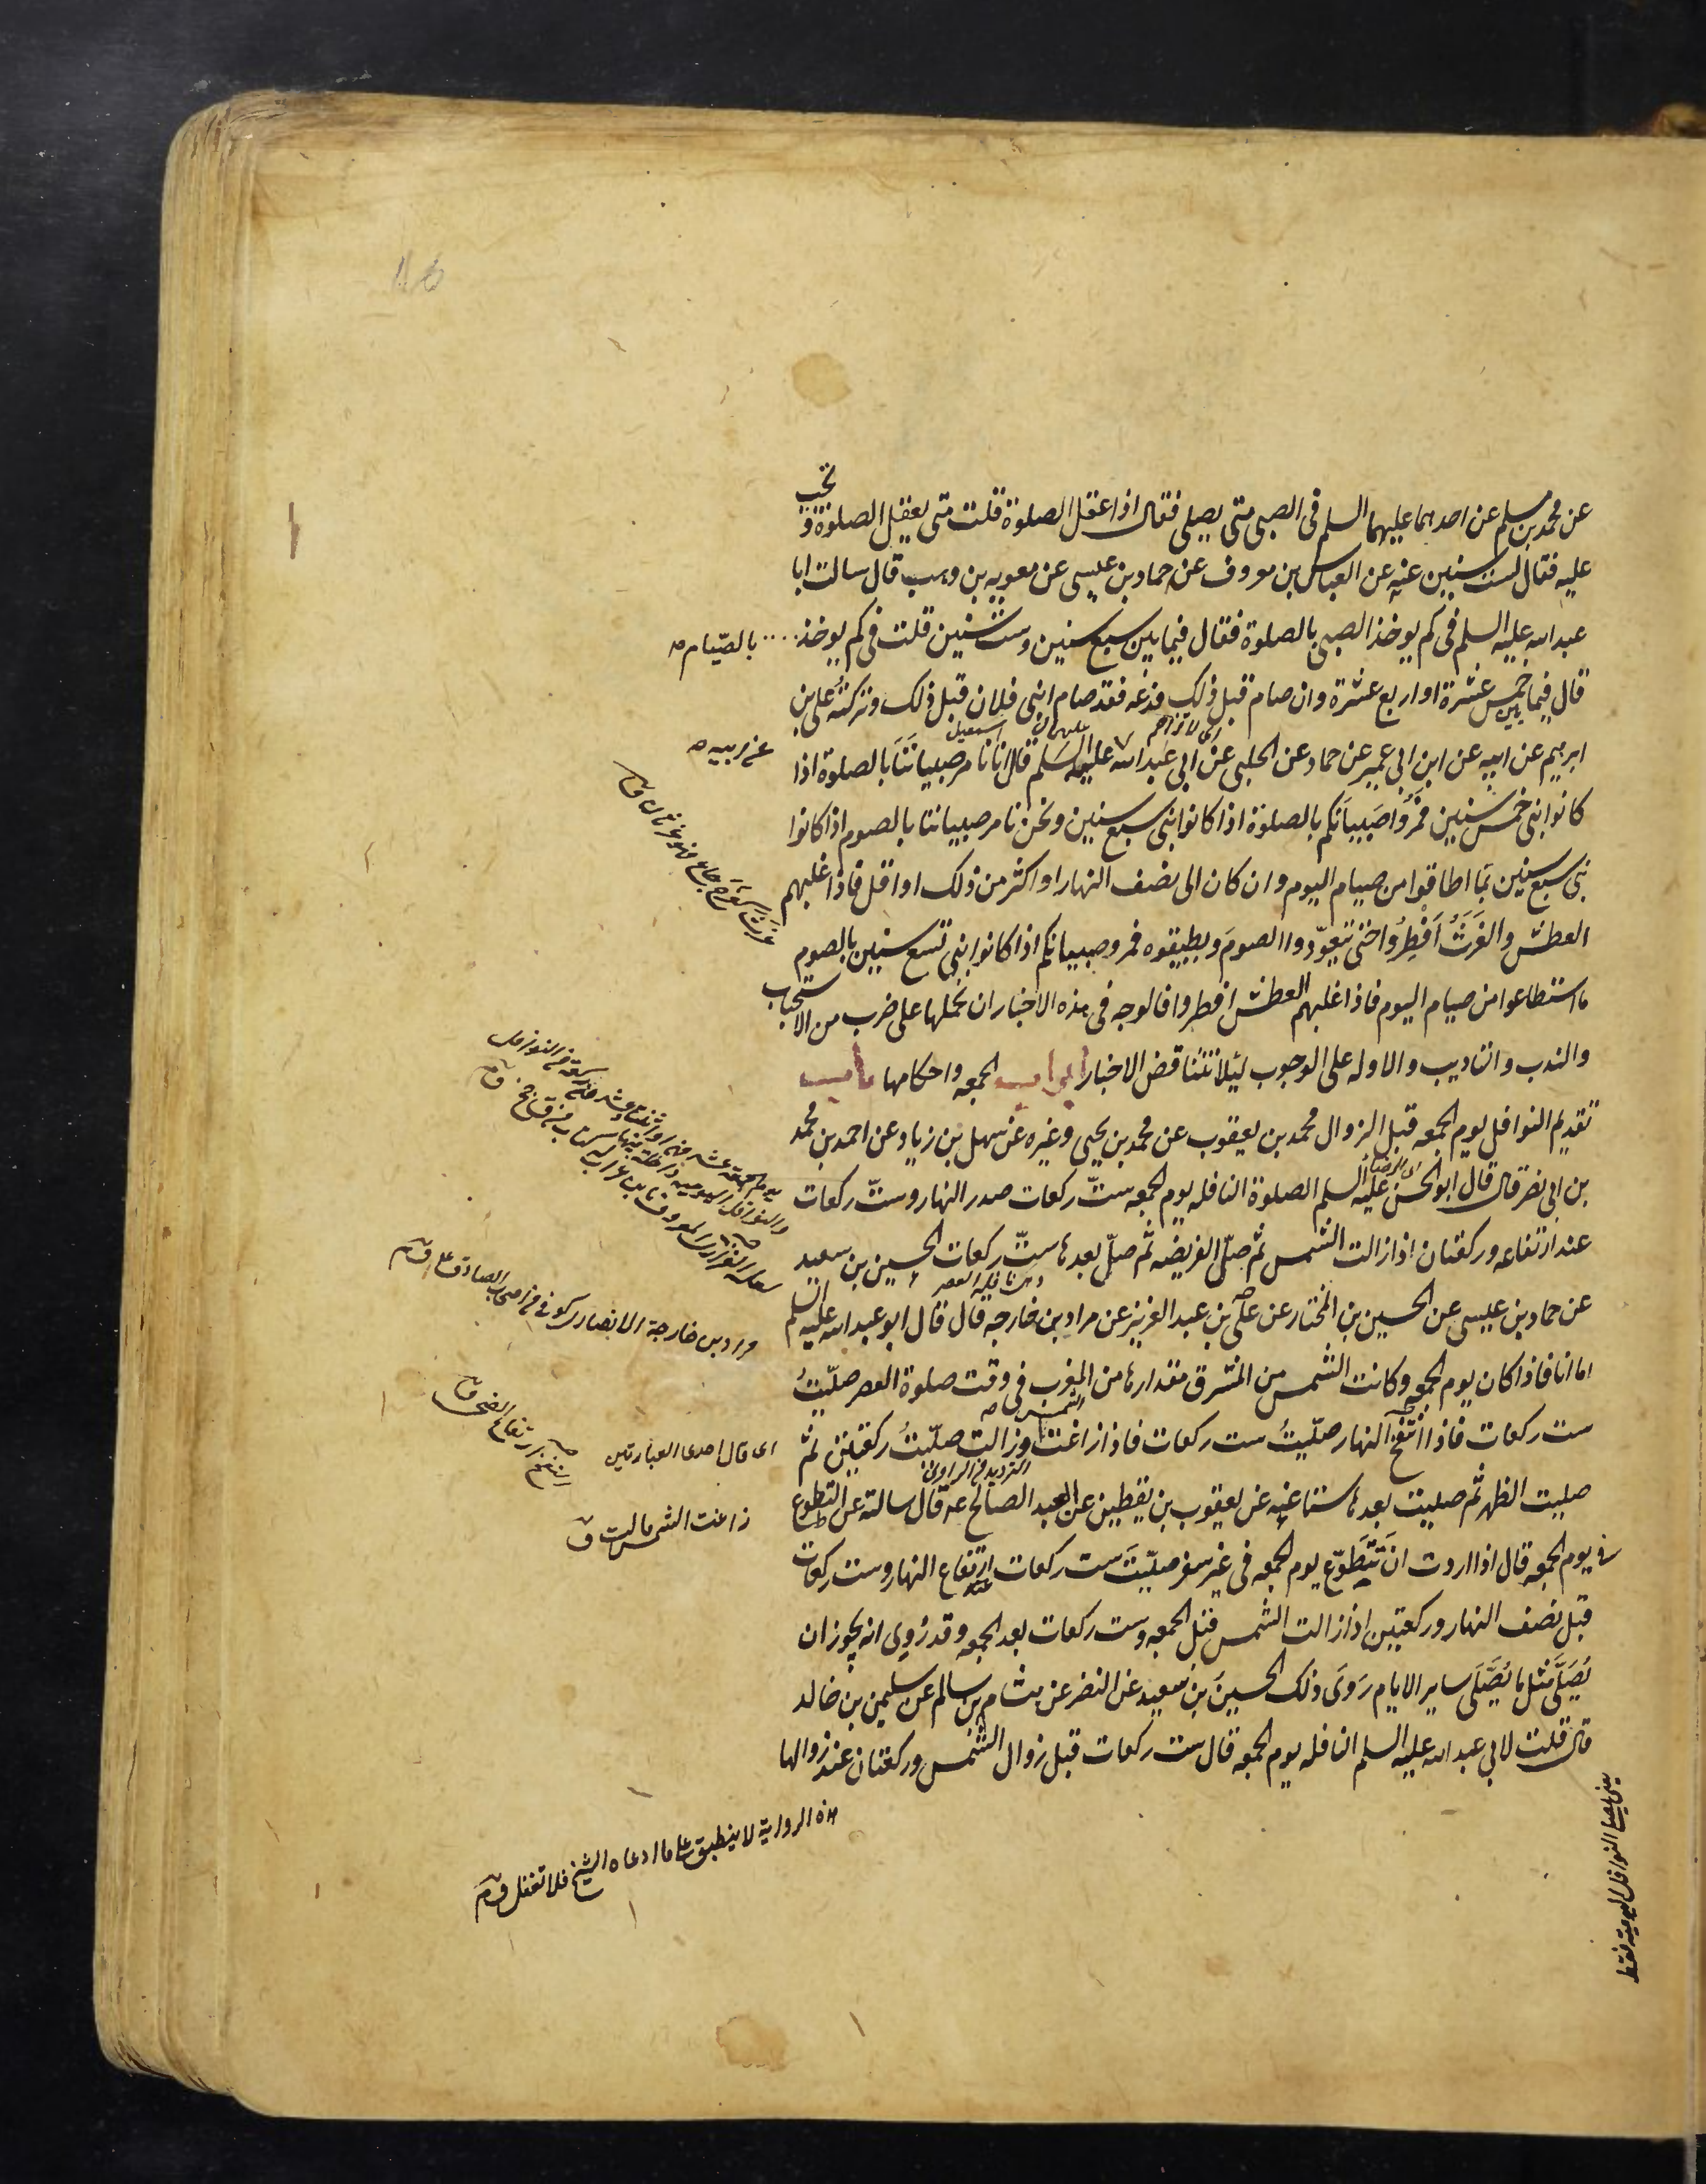 عن محمد بن مسلم عن احدهما عليهما السلم فى الصبى متى يصلى فقال اذا عقل الصلوة قلت متى يعقل الصلوة و تجب
عليه فقال لست سنين عنه عن العباس بن معروف عن حماد بن عيسى عن معويه بن وهب قال سالت ابا
عبد الله عليه السلم فى كم يوخذ الصبى بالصلوة فقال فيما بين سبع سنين وست سنين قلت فى كم يوخذ .... بالصيام
قال فيما بين خمس عشرة او اربع عشرة وان صام قبل ذلك فدعه فقد صام ابنى فلان قبل ذلك وتركته على بن
ابرهيم عن ابيه عن ابن ابى عمير عن حماد عن الحلبى عن ابى عبد الله عليه السلم قال انا نامر صبياننا بالصلوة اذا
عن ابيه
كانوا بنى خمس سنين فمروا صبيانكم بالصلوة اذا كانوا بنى سبع سنين ونحن نامر صبياننا بالصوم اذا كانوا
بنى سبع سنين بما اطاقوا من صيام اليوم وان كان الى نصف النهار او اكثر من ذلك او اقل فاذا غلبهم
العطش والغرث افطروا حتى يتعودوا الصوم ويطيقوه فمروا صبيانكم اذا كانوا بنى تسع سنين بالصوم
ما استطاعوا من صيام اليوم فاذا غلبهم العطش افطروا فالوجه فى هذه الاخبار ان نحملها على ضرب من الاستحباب
والندب والتاديب والاوله على الوجوب ليلا تتناقض الاخبار ابواب الجمعه واحكامها باب
تقديم النوافل يوم الجمعه قبل الزوال محمد بن يعقوب عن محمد بن يحيى وغيره عن سهل بن زياد عن احمد بن محمد
بن ابى نصر قال قال ابو الحسن عليه السلم الصلوة النافله يوم الجمعه ست ركعات صدر النهار وست ركعات
عند ارتفاعه وركعتان اذا زالت الشمس ثم صل الفريضه ثم صل بعدها ست ركعات الحسين بن سعيد
عن حماد بن عيسى عن الحسين بن المختار عن على بن عبد العزيز عن مراد بن خارجه قال قال ابو عبد الله عليه السلم
مراد بن خارجة الانصارى كوفى من اصحاب الصادق
اما انا فاذا كان يوم الجمعه وكانت الشمس من المشرق مقدارها من المغرب فى وقت صلوة العصر صليت
ست ركعات فاذا انتفخ النهار صليت ست ركعات فاذا زاغت الشمس وزالت صليت ركعتين ثم
اى قال احدى العبارتين
صليت الظهر ثم صليت بعدها ستا عنه عن يعقوب بن يقطين عن العبد الصالح ع قال سالته عن التطوع
زاغت الشمس مالت ق
فى يوم الجمعه قال اذا اردت ان تتطوع يوم الجمعه فى غير سفر صليت ست ركعات عند ارتفاع النهار وست ركعات
قبل نصف النهار وركعتين اذا زالت الشمس قبل الجمعه وست ركعات بعد الجمعه وقد روى انه يجوز ان
يصلى مثل ما يصلى ساير الايام روى ذلك الحسين بن سعيد عن النضر عن هشام بن سالم عن سليمن بن خالد
قال قلت لابى عبد الله عليه السلم النافله يوم الجمعه قال ست ركعات قبل زوال الشمس وركعتان عند زوالها
هذه الرواية لا ينطبق على ما ادعاه الشيخ فلا تغفل